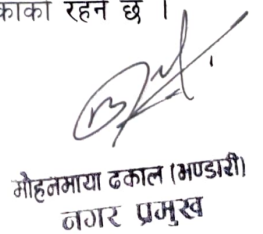 रहने छ ।
मोहनमाया ढकाल (भण्डारी)
नगर प्रमुख